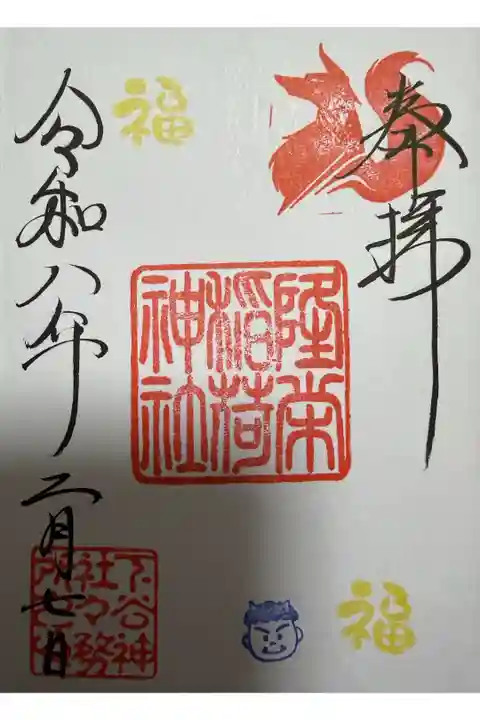 奉拝
福
隆栄
稲荷
神社
福
令和八年二月七日
下谷神
社々務
所之印